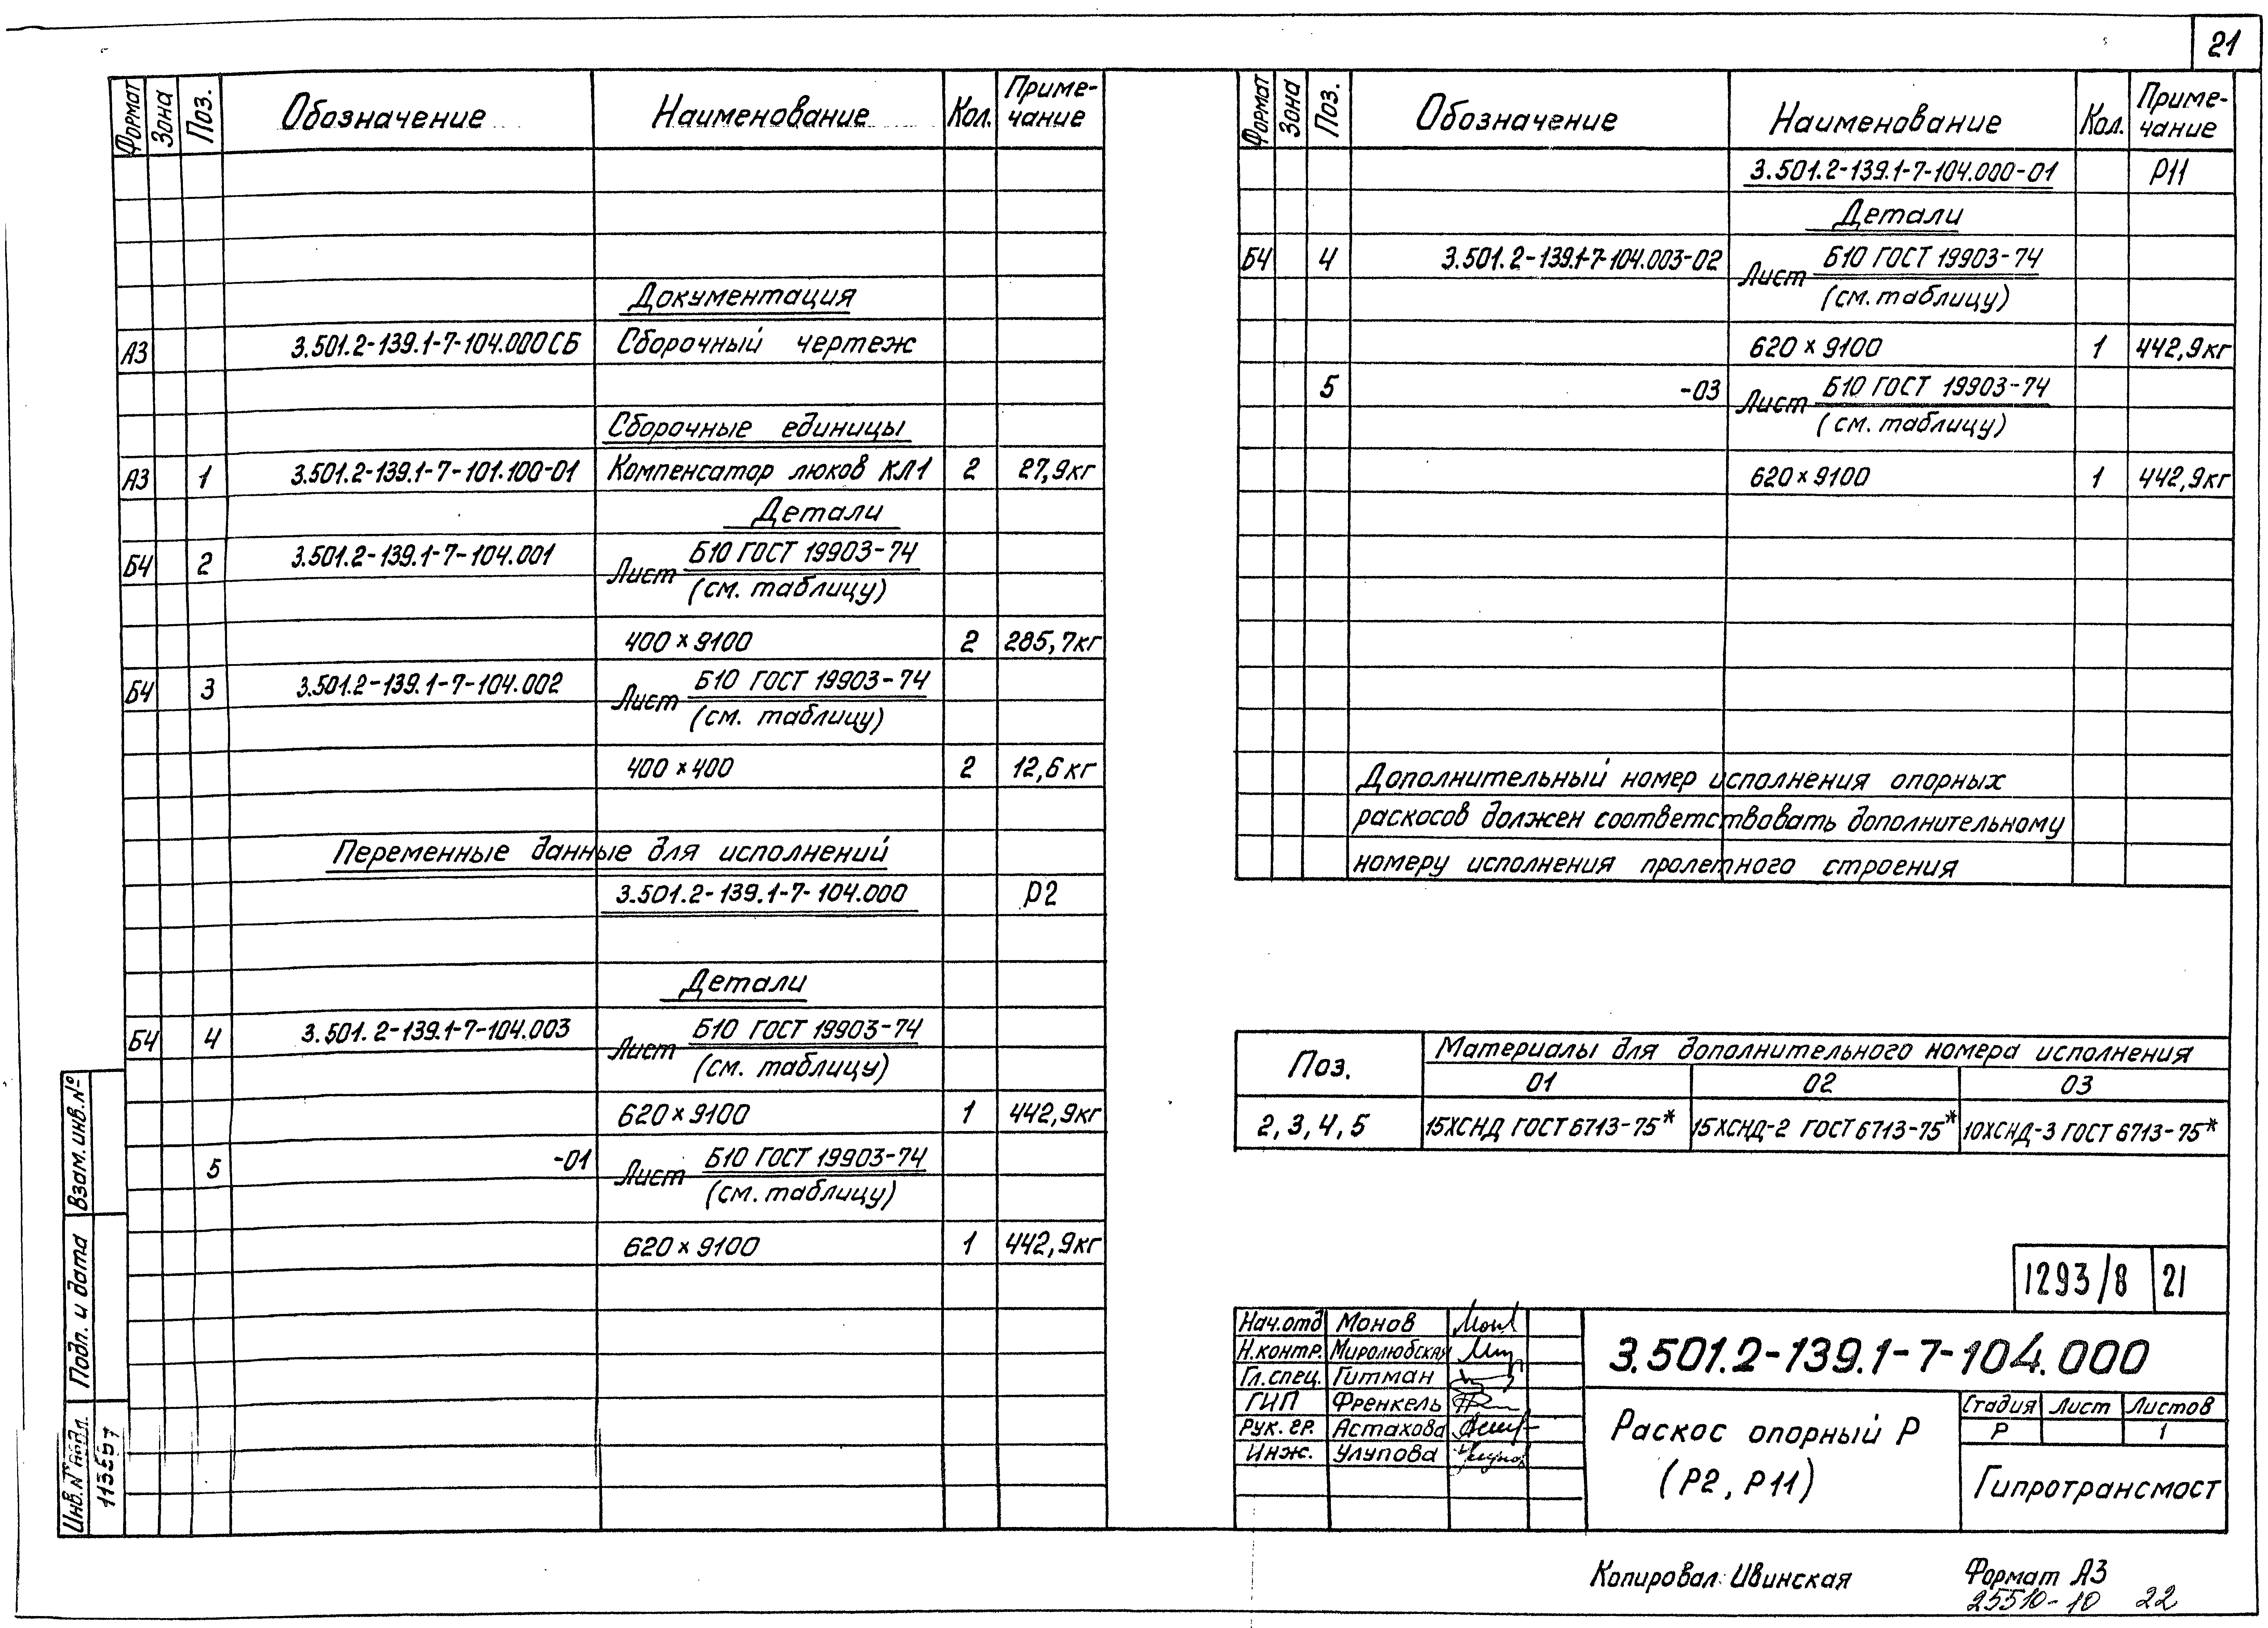 21
Формат Зона Поз. Обозначение Наименование Кол. Приме-
чание
Документация
А3 3.501.2-139.1-7-104.000СБ Сборочный чертеж
Сборочные единицы
А3 1 3.501.2-139.1-7-101.100-01 Компенсатор люков КЛ1 2 27,9кг
Детали
Б4 2 3.501.2-139.1-7-104.001 Лист Б10 ГОСТ 19903-74
(см. таблицу)
400×9100 2 285,7кг
Б4 3 3.501.2-139.1-7-104.002 Лист Б10 ГОСТ 19903-74
(см. таблицу)
400×400 2 12,6кг
Переменные данные для исполнений
3.501.2-139.1-7-104.000 Р2
Детали
Б4 4 3.501.2-139.1-7-104.003 Лист Б10 ГОСТ 19903-74
(см. таблицу)
620×9100 1 442,9кг
5 -01 Лист Б10 ГОСТ 19903-74
(см. таблицу)
620×9100 1 442,9кг
Формат Зона Поз. Обозначение Наименование Кол. Приме-
чание
3.501.2-139.1-7-104.000-01 Р11
Детали
Б4 4 3.501.2-139.1-7-104.003-02 Лист Б10 ГОСТ 19903-74
(см. таблицу)
620×9100 1 442,9кг
5 -03 Лист Б10 ГОСТ 19903-74
(см. таблицу)
620×9100 1 442,9кг
Дополнительный номер исполнения опорных
раскосов должен соответствовать дополнительному
номеру исполнения пролетного строения
Поз. Материалы для дополнительного номера исполнения
01 02 03
2,3,4,5 15ХСНД ГОСТ 6713-75* 15ХСНД-2 ГОСТ 6713-75* 10ХСНД-3 ГОСТ 6713-75*
1293/8 21
Нач.отд Монов
Н.контр. Миролюбская
Гл.спец. Гитман
ГИП Френкель
Рук. гр. Астахова
Инж. Улупова
3.501.2-139.1-7-104.000
Раскос опорный Р
(Р2, Р11)
Стадия Лист Листов
Р 1
Гипротрансмост
Взам.инв.№
Подп. и дата
Инв.№ подл.
Копировал: Ивинская Формат А3
25510-10 22